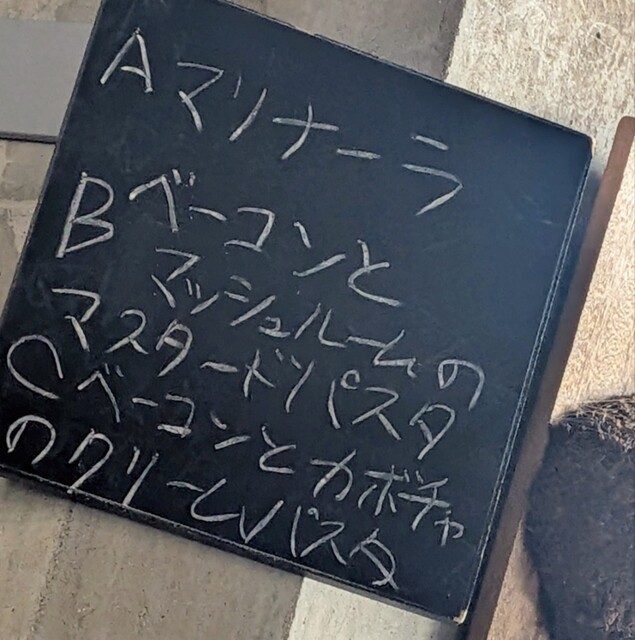 A マリナーラ
B ベーコンと
マッシュルームの
マスタードパスタ
C ベーコンとカボチャ
のクリームパスタ